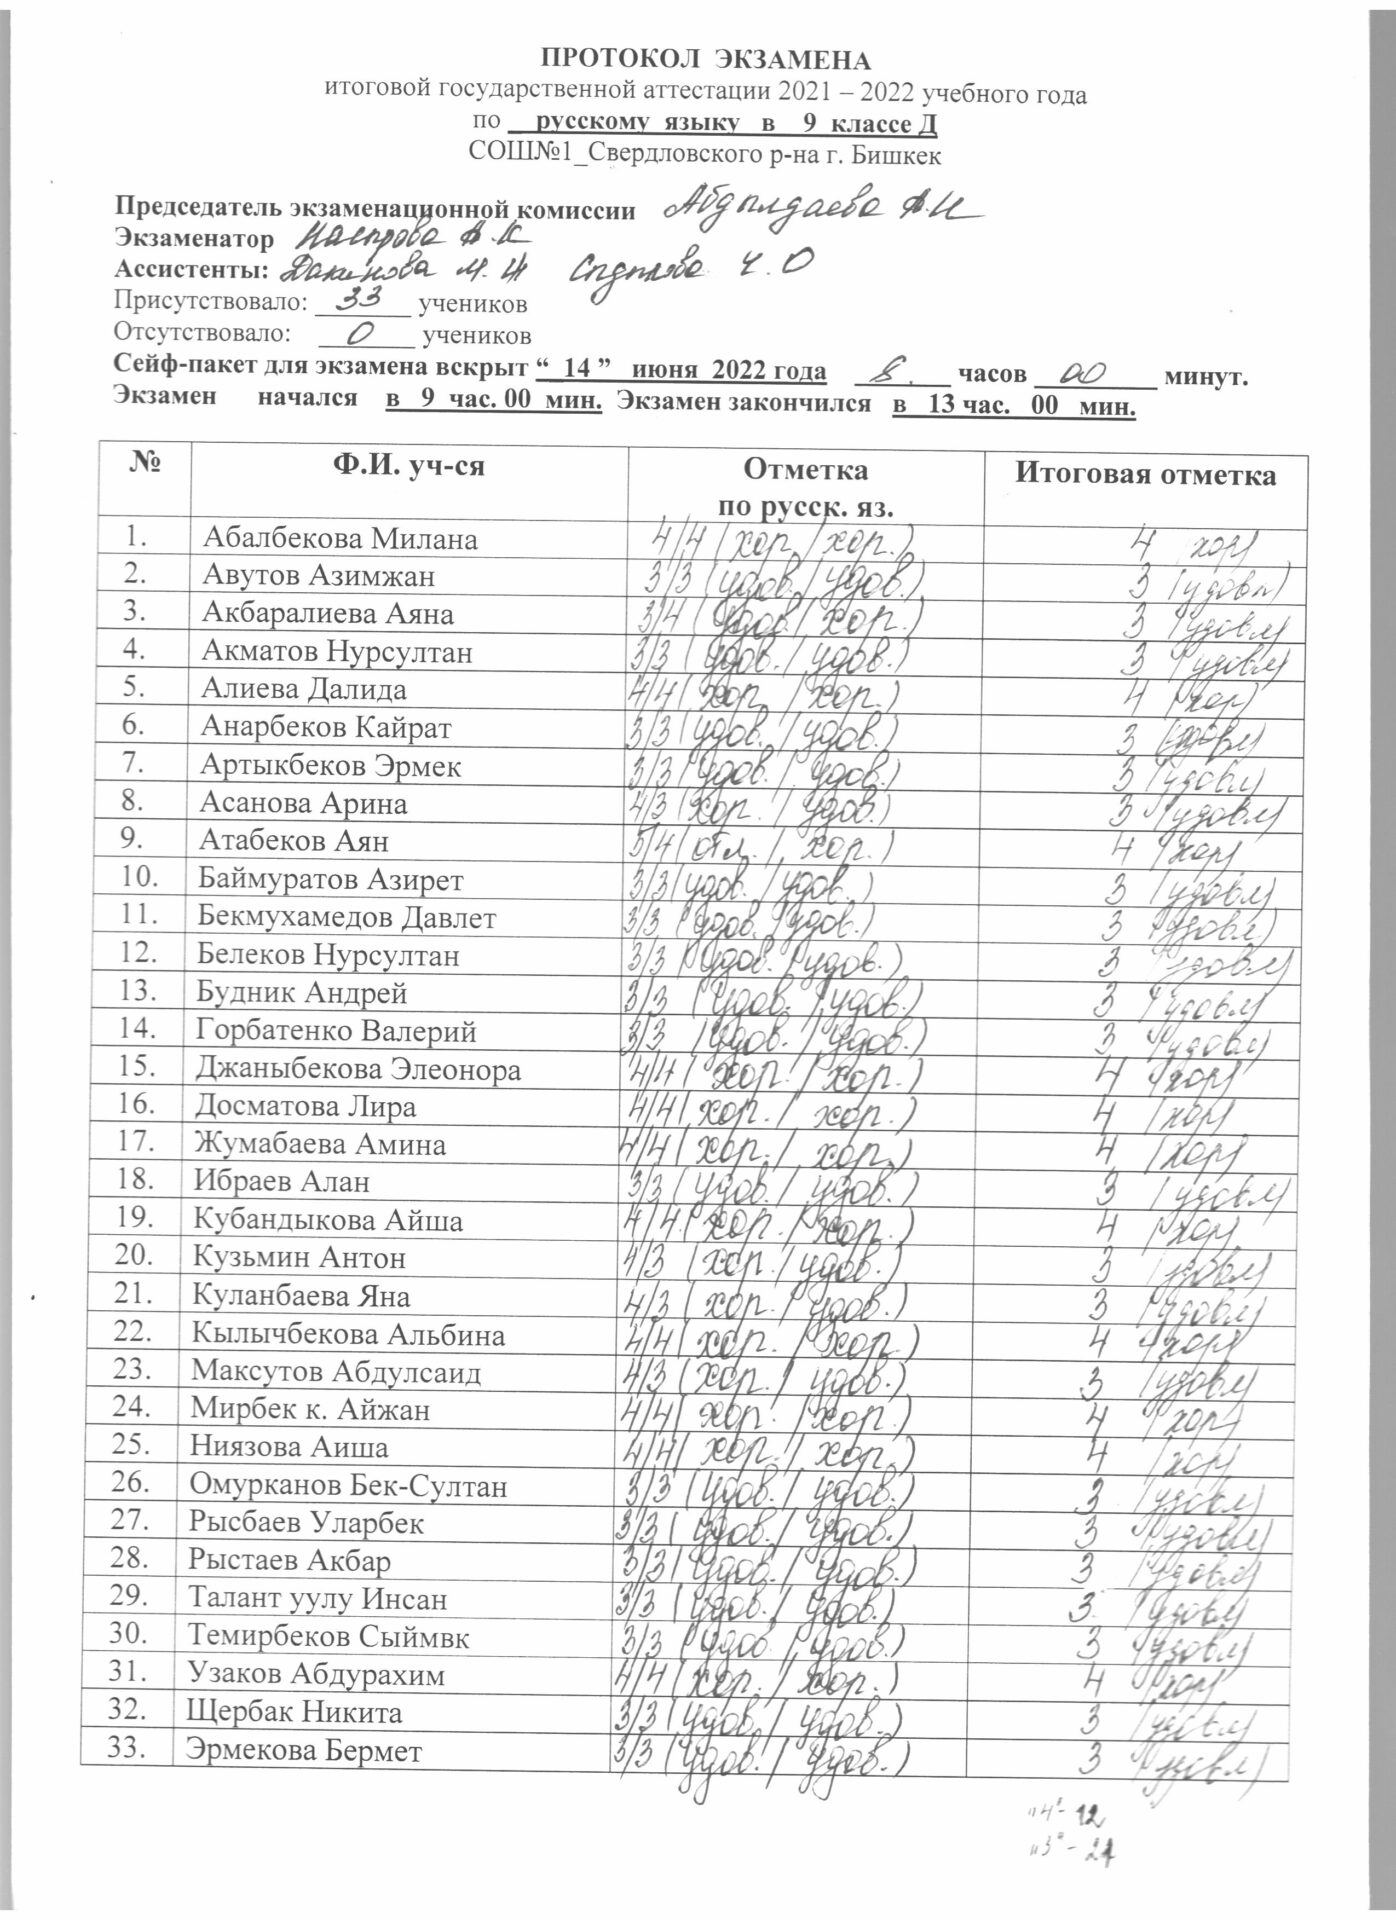 ПРОТОКОЛ ЭКЗАМЕНА
итоговой государственной аттестации 2021 – 2022 учебного года
по русскому языку в 9 классе Д
СОШ№1_Свердловского р-на г. Бишкек
Председатель экзаменационной комиссии Абдылдаева А.И
Экзаменатор А.К
Ассистенты: М.Ж Ч.О
Присутствовало: 33 учеников
Отсутствовало: 0 учеников
Сейф-пакет для экзамена вскрыт “ 14 ” июня 2022 года 8 . часов 00 минут.
Экзамен начался в 9 час. 00 мин. Экзамен закончился в 13 час. 00 мин.
№ Ф.И. уч-ся Отметка по русск. яз. Итоговая отметка
1. Абалбекова Милана 4/4 (хор. / хор.) 4 (хор)
2. Авутов Азимжан 3/3 (удов. / удов.) 3 (удовл)
3. Акбаралиева Аяна 3/4 (удов. / хор.) 3 (удовл)
4. Акматов Нурсултан 3/3 (удов. / удов.) 3 (удовл)
5. Алиева Далида 4/4 (хор. / хор.) 4 (хор)
6. Анарбеков Кайрат 3/3 (удов. / удов.) 3 (удовл)
7. Артыкбеков Эрмек 3/3 (удов. / удов.) 3 (удовл)
8. Асанова Арина 4/3 (хор. / удов.) 3 (удовл)
9. Атабеков Аян 5/4 (отл. / хор.) 4 (хор)
10. Баймуратов Азирет 3/3 (удов. / удов.) 3 (удовл)
11. Бекмухамедов Давлет 3/3 (удов. / удов.) 3 (удовл)
12. Белеков Нурсултан 3/3 (удов. / удов.) 3 (удовл)
13. Будник Андрей 3/3 (удов. / удов.) 3 (удовл)
14. Горбатенко Валерий 3/3 (удов. / удов.) 3 (удовл)
15. Джаныбекова Элеонора 4/4 (хор. / хор.) 4 (хор)
16. Досматова Лира 4/4 (хор. / хор.) 4 (хор)
17. Жумабаева Амина 4/4 (хор. / хор.) 4 (хор)
18. Ибраев Алан 3/3 (удов. / удов.) 3 (удовл)
19. Кубандыкова Айша 4/4 (хор. / хор.) 4 (хор)
20. Кузьмин Антон 4/3 (хор. / удов.) 3 (удовл)
21. Куланбаева Яна 4/3 (хор. / удов.) 3 (удовл)
22. Кылычбекова Альбина 4/4 (хор. / хор.) 4 (хор)
23. Максутов Абдулсаид 4/3 (хор. / удов.) 3 (удовл)
24. Мирбек к. Айжан 4/4 (хор. / хор.) 4 (хор)
25. Ниязова Аиша 4/4 (хор. / хор.) 4 (хор)
26. Омурканов Бек-Султан 3/3 (удов. / удов.) 3 (удовл)
27. Рысбаев Уларбек 3/3 (удов. / удов.) 3 (удовл)
28. Рыстаев Акбар 3/3 (удов. / удов.) 3 (удовл)
29. Талант уулу Инсан 3/3 (удов. / удов.) 3 (удовл)
30. Темирбеков Сыймвк 3/3 (удов. / удов.) 3 (удовл)
31. Узаков Абдурахим 4/4 (хор. / хор.) 4 (хор)
32. Щербак Никита 3/3 (удов. / удов.) 3 (удовл)
33. Эрмекова Бермет 3/3 (удов. / удов.) 3 (удовл)
"4" - 12
"3" - 21